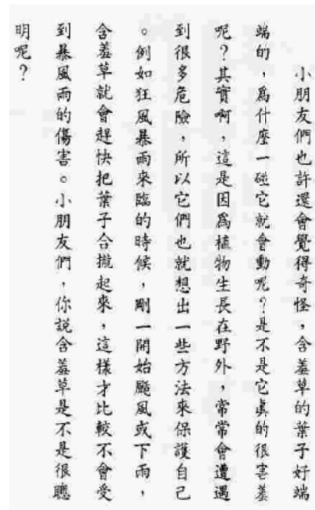 小朋友們也許還會覺得奇怪，含羞草的葉子好端
端的，爲什麼一碰它就會動呢？是不是它真的很害羞
呢？其實啊，這是因爲植物生長在野外，常常會遭遇
到很多危險，所以它們也就想出一些方法來保護自己
。例如狂風暴雨來臨的時候，剛一開始颳風或下雨，
含羞草就會趕快把葉子合攏起來，這樣才比較不會受
到暴風雨的傷害。小朋友們，你說含羞草是不是很聰
明呢？